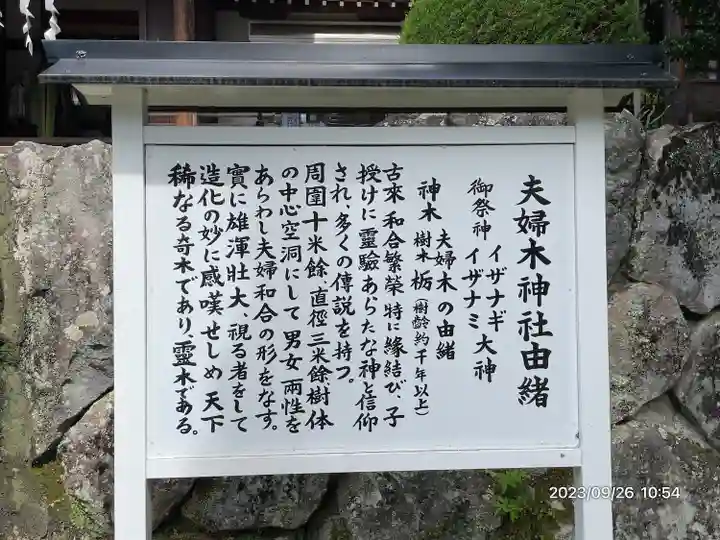 夫婦木神社由緒
御祭神 イザナギ イザナミ 大神
夫婦木の由緒
神木 樹木 栃 (樹齢約千年以上)
古來和合繁榮、特に縁結び、子
授けに靈驗あらたな神と信仰
され、多くの傳説を持つ。
周圍十米餘、直徑三米餘樹体
の中心空洞にして男女両性を
あらわし夫婦和合の形をなす。
實に雄渾壯大、視る者をして
造化の妙に感嘆せしめ天下
稀なる奇木であり、靈木である。
2023/09/26 10:54